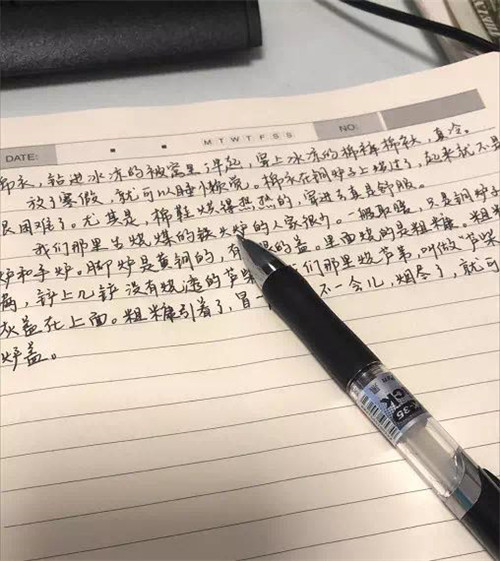 DATE: M T W T F S S NO:
棉衣,钻进冰凉的被窝里,早起,穿上冰凉的棉裤棉袄,真冷。
放了寒假,就可以睡懒觉。棉衣在铜炉子上烘过了,起来就不是
很困难了。尤其是,棉鞋烘得热热的,穿进去真是舒服。
我们那里生烧煤的铁火炉的人家很少。一般取暖,只是铜炉子
炉和手炉。脚炉是黄铜的,有 眼的盖。里面烧的是粗糠。粗糠
满,铲上几铲没有烧透的芦柴 们那里烧芦苇,叫做“芦柴
灰盖在上面。粗糠引着了,冒一 不一会儿,烟尽了,就可
炉盖。
35
CK